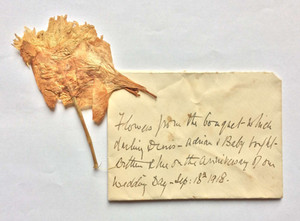 Flowers from the bouquet which
darling Denis - Adrian & Baby bought
& me on the Anniversary of our
Wedding Day - Sep: 18th 1918.